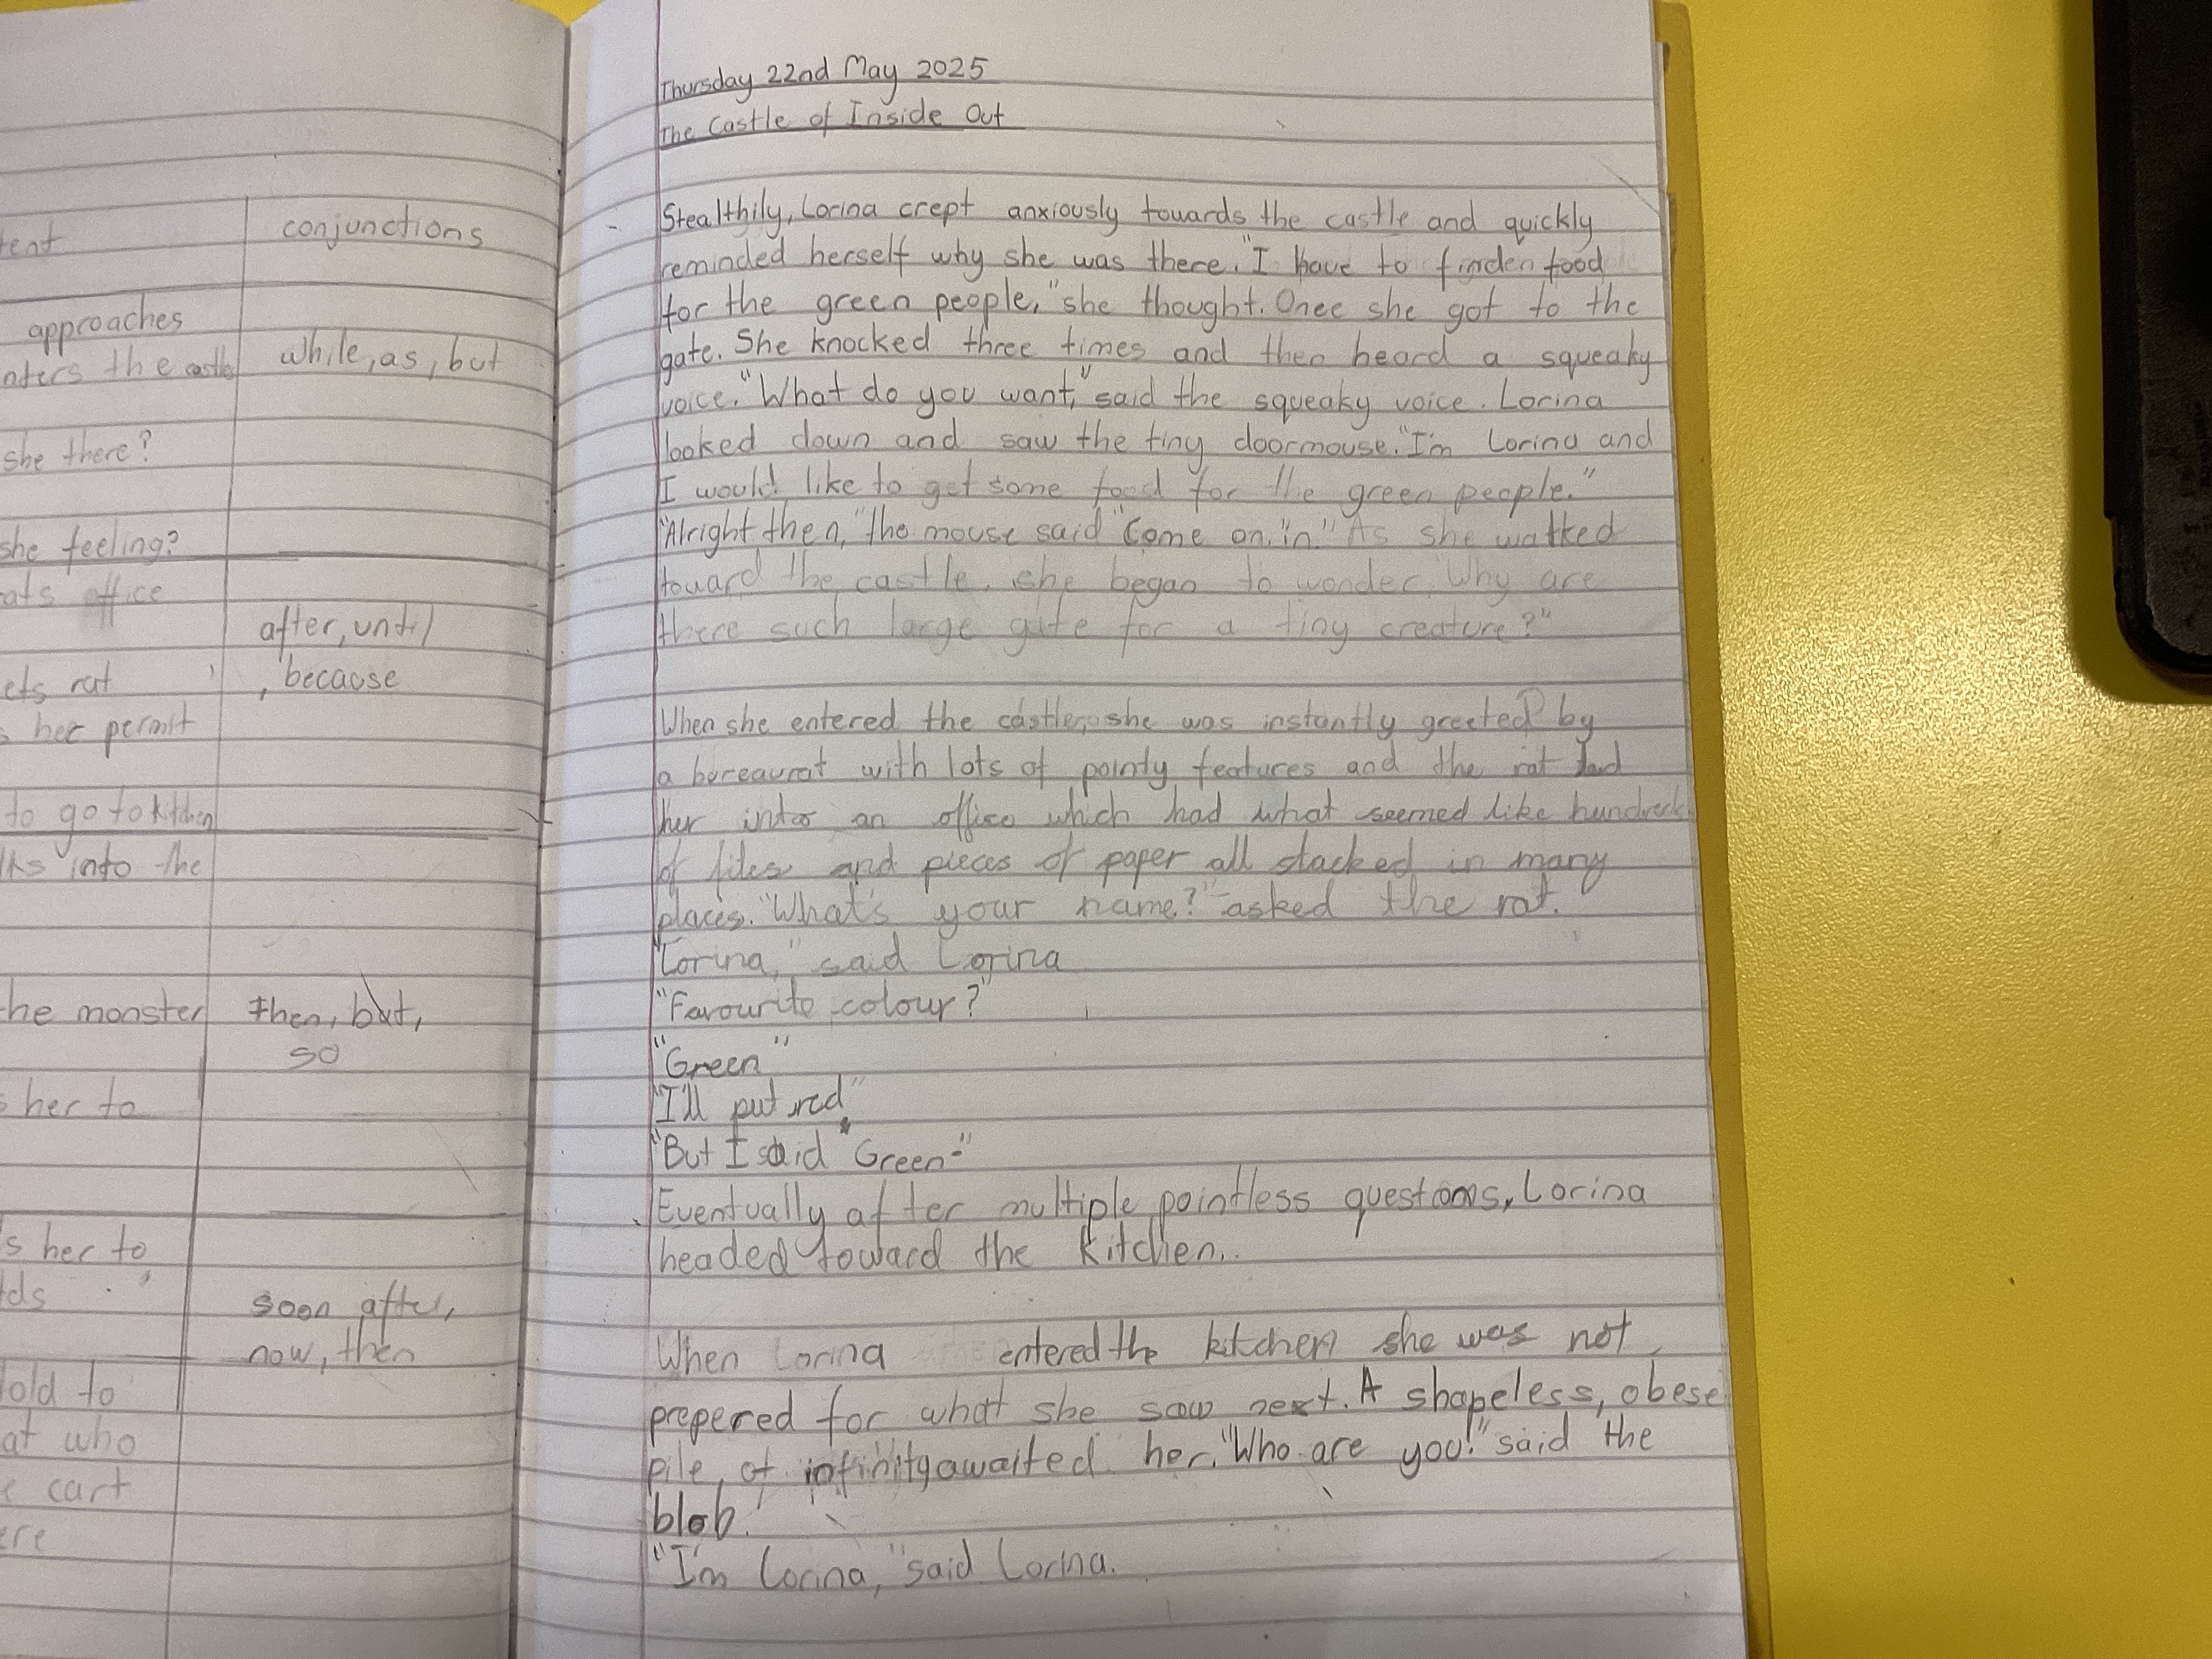 tent
conjunctions
approaches
nters the castle
while, as, but
she there?
she feeling?
ats office
after, until
ets rat
, because
s her permit
to go to kitchen
lks into the
he monster
then, but,
so
s her to
s her to
ds
soon after,
now, then
old to
at who
e cart
ere
Thursday 22nd May 2025
The Castle of Inside Out
Stealthily, Lorina crept anxiously towards the castle and quickly
reminded herself why she was there. "I have to finden food
for the green people," she thought. Once she got to the
gate. She knocked three times and then heard a squeaky
voice. "What do you want," said the squeaky voice. Lorina
looked down and saw the tiny doormouse. "I'm Lorina and
I would like to get some food for the green people."
"Alright then," the mouse said "Come on in." As she walked
toward the castle, she began to wonder "Why are
there such large gate for a tiny creature?"
When she entered the castle, she was instantly greeted by
a bureaurat with lots of pointy features and the rat lad
her into an office which had what seemed like hundreds
of files and pieces of paper all stacked in many
places. "What's your name?" asked the rat.
"Lorina," said Lorina
"Favourite colour?"
"Green"
"I'll put red"
"But I said "Green-"
Eventually after multiple pointless questions, Lorina
headed toward the kitchen..
When Lorina entered the kitchen she was not
prepered for what she saw next. A shapeless, obese
pile of infinity awaited her. "Who are you!" said the
blob.
"I'm Lorina," said Lorina.